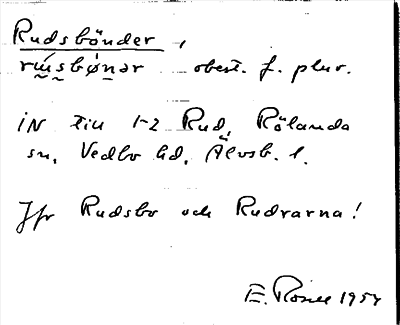 Rudsbönder,
obest. f. plur.
IN till 1-2 Rud, Rölanda
sn, Vedbo hd, Älvsb. l.
Jfr Rudsbo och Rudrarna!
E. Rosell 1954